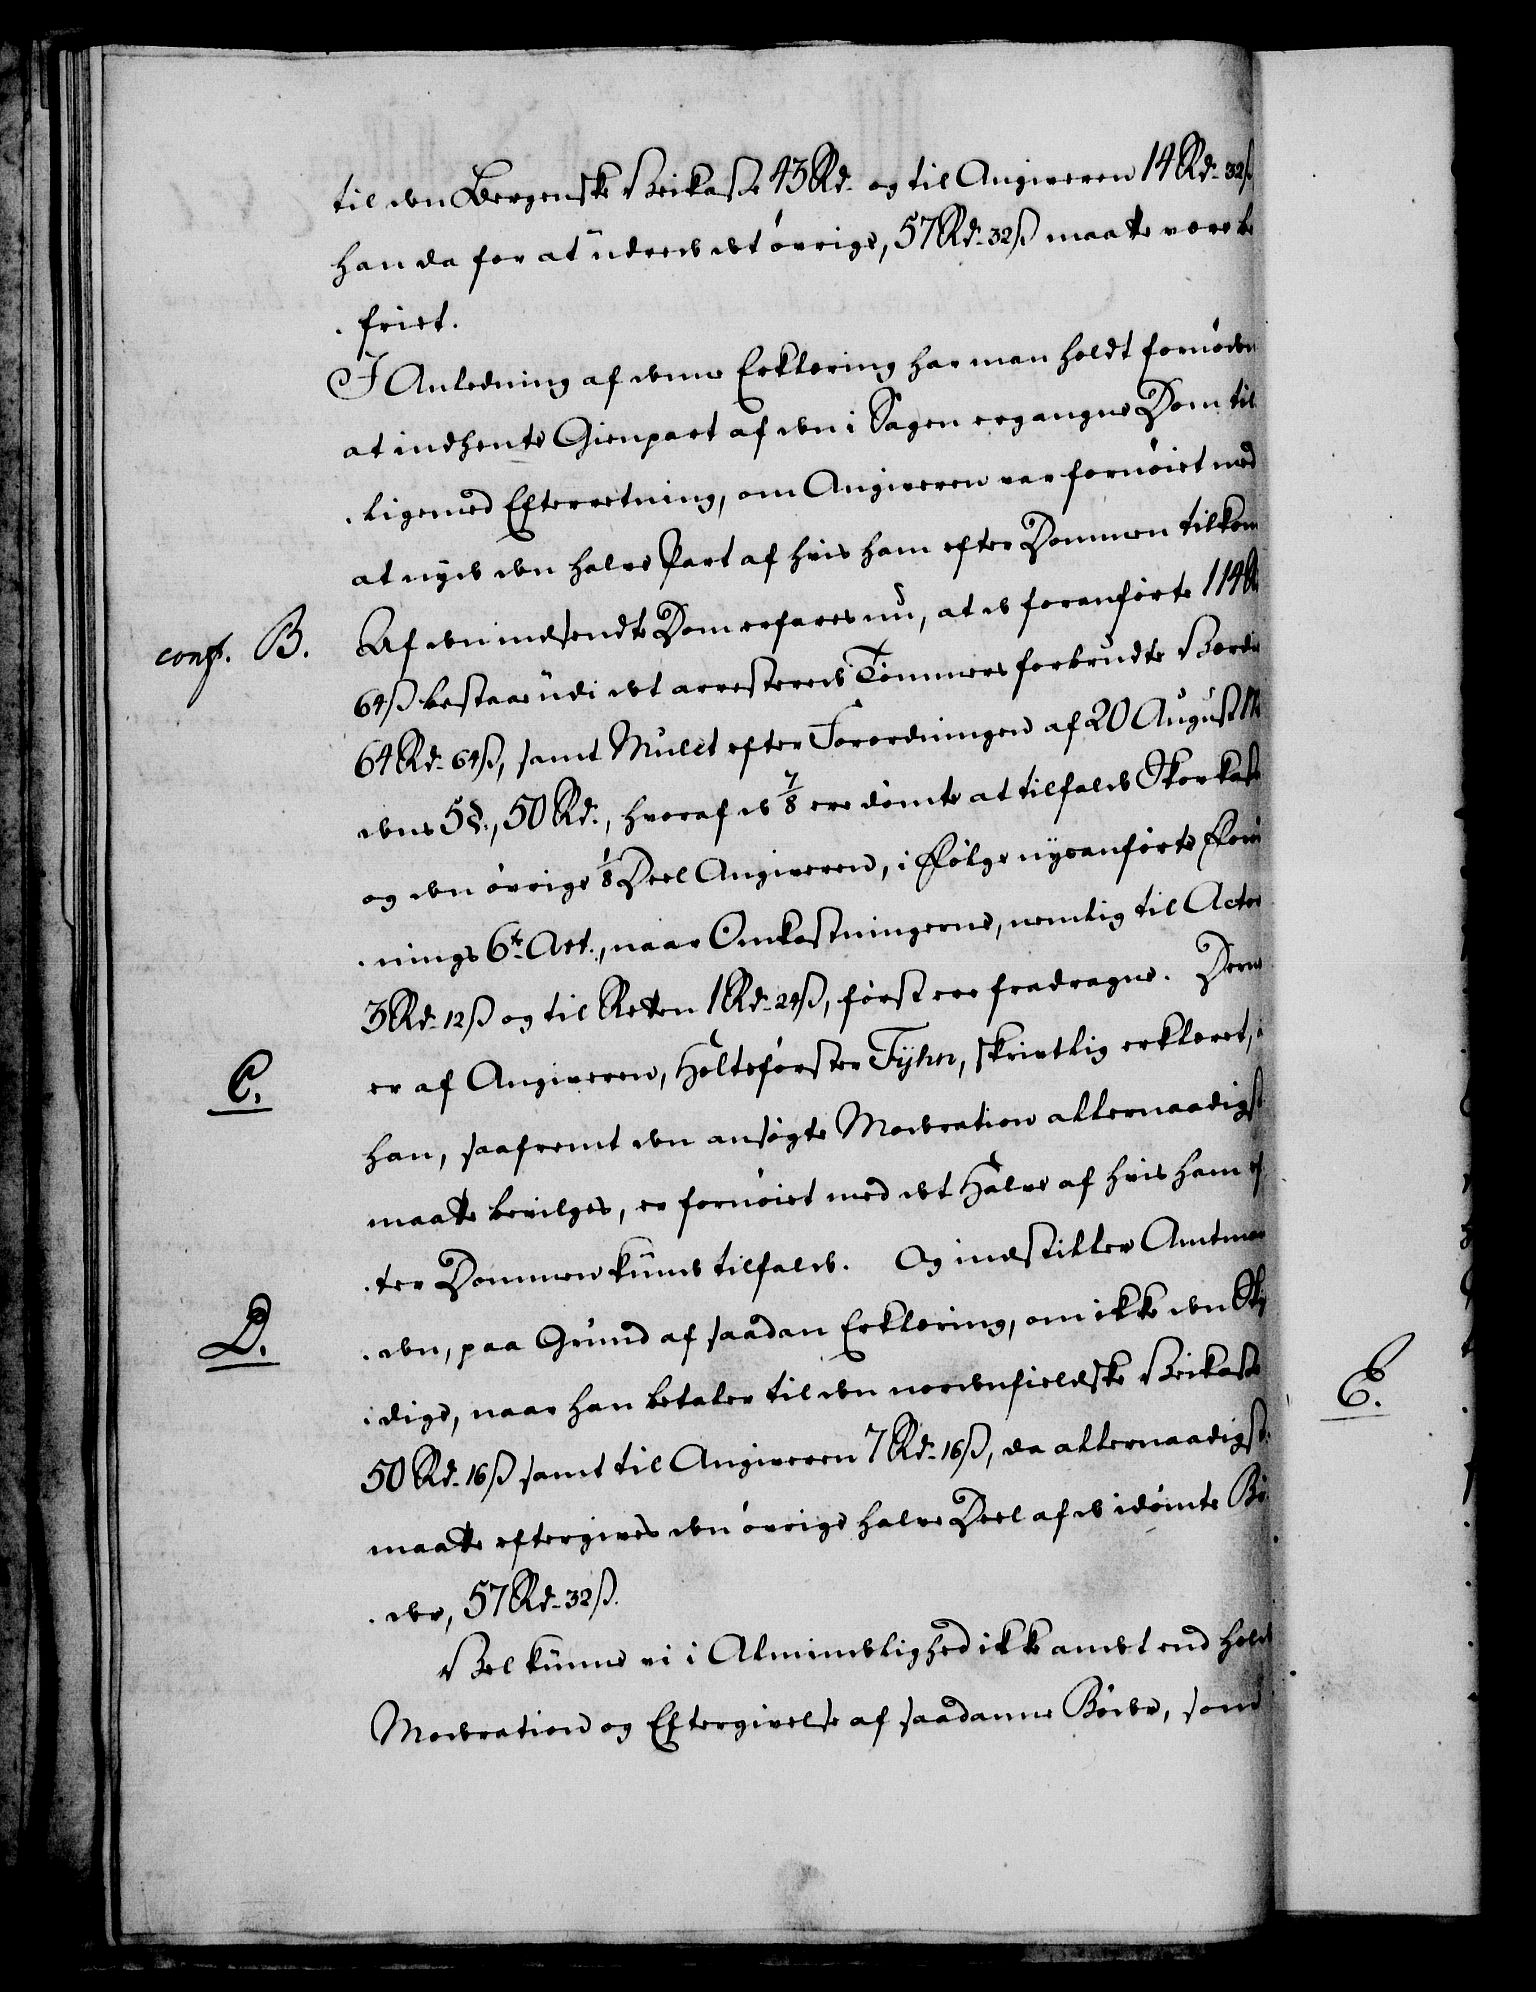 til den Bergenske Veikasse 43 Rd. og til Angiveren 14 Rd. 32 ß
han da for at udrede det øvrige, 57 Rd. 32 ß maatte være be
friet.
I Anledning af denne Erklæring har man holdt fornøden
at indhente Gienpart af den i Sagen ergangne Dom til
ligemed Efterretning, om Angiveren var fornøiet med
at nyde den halve Part af hvis ham efter Dommen tilkom
conf. B.
Af den indsendte Dom erfares nu, at de foranførte 114 R
64 ß bestaae udi det arresterede Tømmers forbrudte Værdi
64 Rd. 64 ß, samt Mulct efter Forordningen af 20 August
dens 5 §., 50 Rd., hvoraf de 7/8 ere dømte at tilfalde
og den øvrige 1/8 Deel Angiveren, i Følge nysanførte Foror
nings 6te Art., naar Omkostningerne, nemlig til Actor
3 Rd. 12 ß og til Retten 1 Rd. 24 ß, først ere fradragne. Derne
C.
er af Angiveren, Holtzførster Tyhn, skrivtlig erklæret, a
han, saafremt den ansøgte Moderation allernaadigst
maatte bevilges, er fornøiet med det Halve af hvis ham ef
ter Dommen kunde tilfalde. Og indstiller Amtman
D.
den, paa Grund af saadan Erklæring, om ikke den Sky
dige, naar han betaler til den nordenfieldske Veikasse
50 Rd. 16 ß samt til Angiveren 7 Rd. 16 ß, da allernaadigst
maatte eftergives den øvrige halve Deel af de idømte Bø
der, 57 Rd. 32 ß.
Vel kunne vi i Almindelighed ikke andet end holde
Moderation og Eftergivelse af saadanne Bøder, som
E.